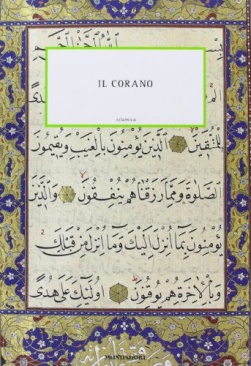 بسم الله الرحمن الرحيم
IL CORANO
islamica
للمتقين الذين يؤمنون بالغيب ويقيمون
الصلوة ومما رزقناهم ينفقون والذين
يؤمنون بما أنزل إليك وما أنزل من قبلك
وبالآخرة هم يوقنون أولئك على هدى
MONDADORI